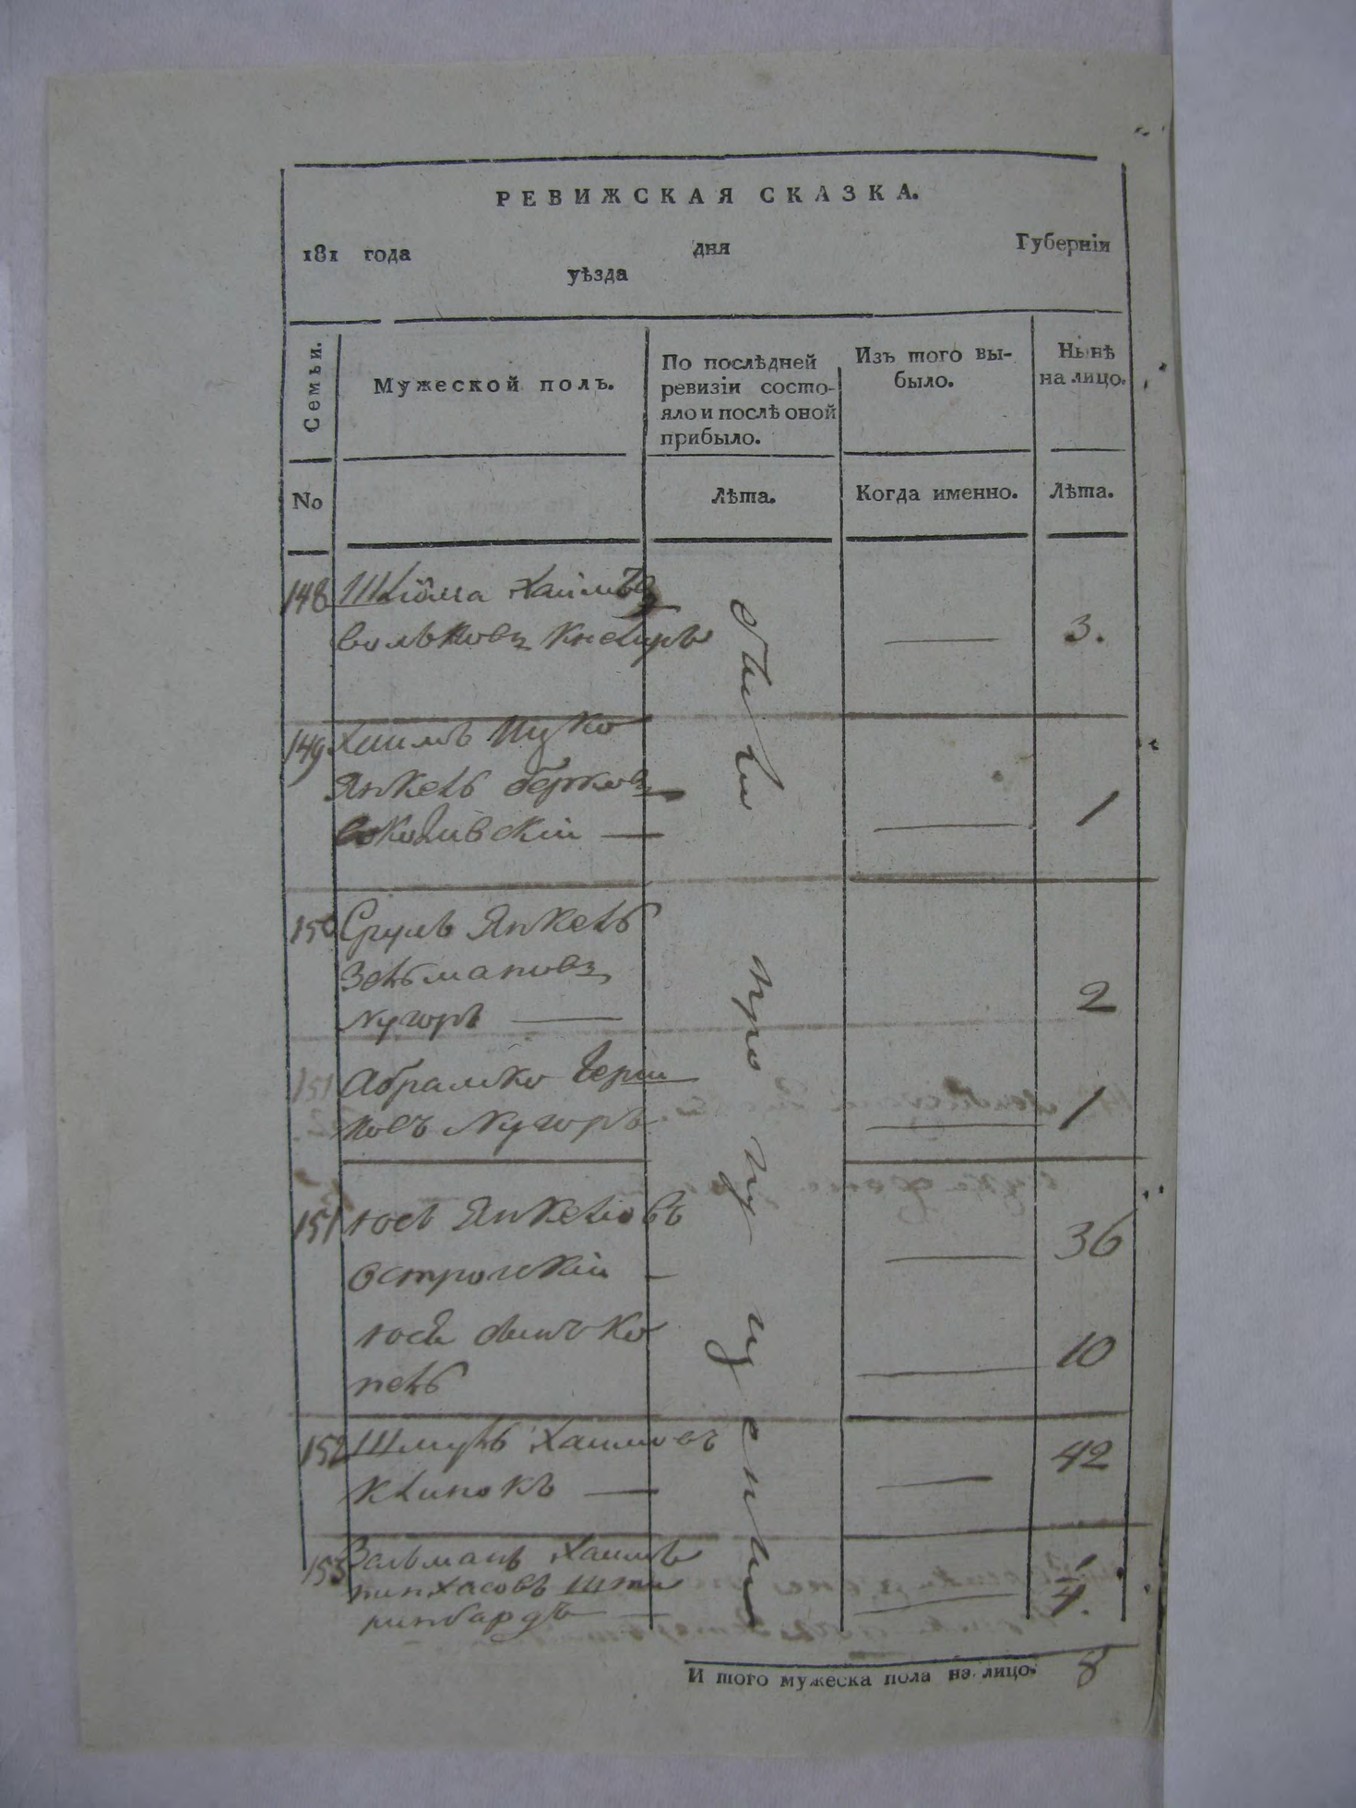 РЕВИЖСКАЯ СКАЗКА.
181 года дня Губерніи
уѣзда
Семьи.
Мужеской полъ.
По послѣдней ревизіи состо-яло и послѣ оной прибыло.
Изъ того вы-было.
Нынѣ на лицо.
No
Лѣта.
Когда именно.
Лѣта.
148 Шлiома Хаимъ
Вольковъ 3.
149 Хаимъ Ицко
Янкель Берковъ
1
150 Сруль Янкель
Зельмановъ
Мугоръ 2
151 Абрамко Герш
ковъ Мугоръ 1
151 Іось Янкелiовъ
Острожскiй 36
10
152 Шмуль Хаимовъ
Клинокъ 42
153 Зельманъ Хаимъ
Пинхасовъ Шти
4.
были пропущенны
И того мужеска пола на лицо. 8